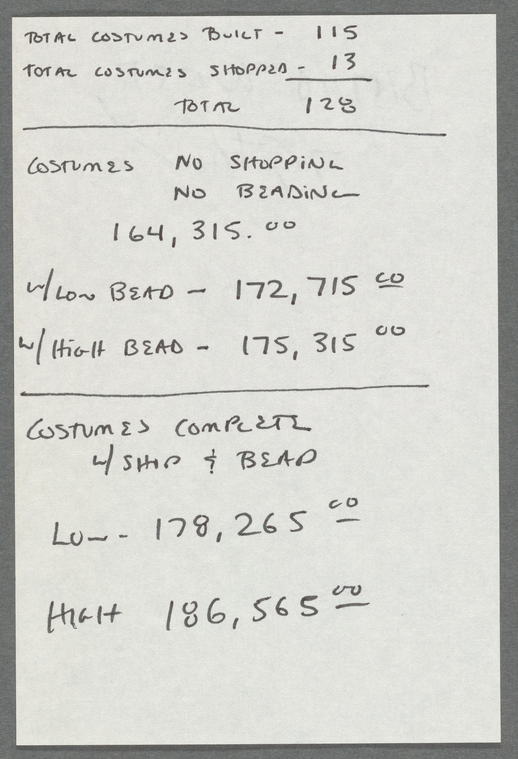 TOTAL COSTUMES BUILT - 115
TOTAL COSTUMES SHOPPED - 13
TOTAL 128
COSTUMES NO SHOPPING
NO BEADING
164,315.00
W/LOW BEAD - 172,715 00
W/HIGH BEAD - 175,315 00
COSTUMES COMPLETE
W/SHIP & BEAD
LOW - 178,265 00
HIGH 186,565 00